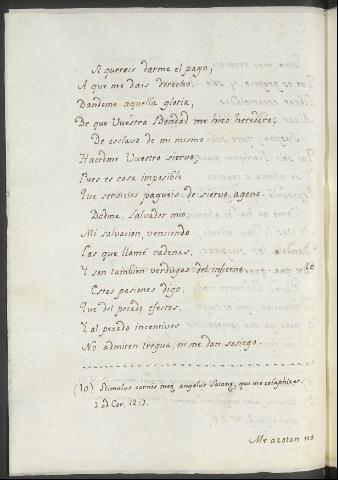 Si quereis darme el pago,
A que me dais derecho,
Dandome aquella gloria,
De que Vuestra Bondad me hizo heredero;
De esclavo de mi mismo
Hacedme Vuestro siervo,
Pues es cosa imposible
Que servicios pagueis de siervo ageno.
Dadme, Salvador mio,
Mi salvacion, venciendo
Las que llamé cadenas,
Y son tambien verdugos del infierno. 10
Estas pasiones digo,
Que del pecado efectos,
Y al pecado incentivos
No admiten tregua, ni me dan sosiego.
(10) Stimulus carnis meæ angelus Satanæ, qui me colaphizet.
2 ad Cor. 12:7.
Me azotan no